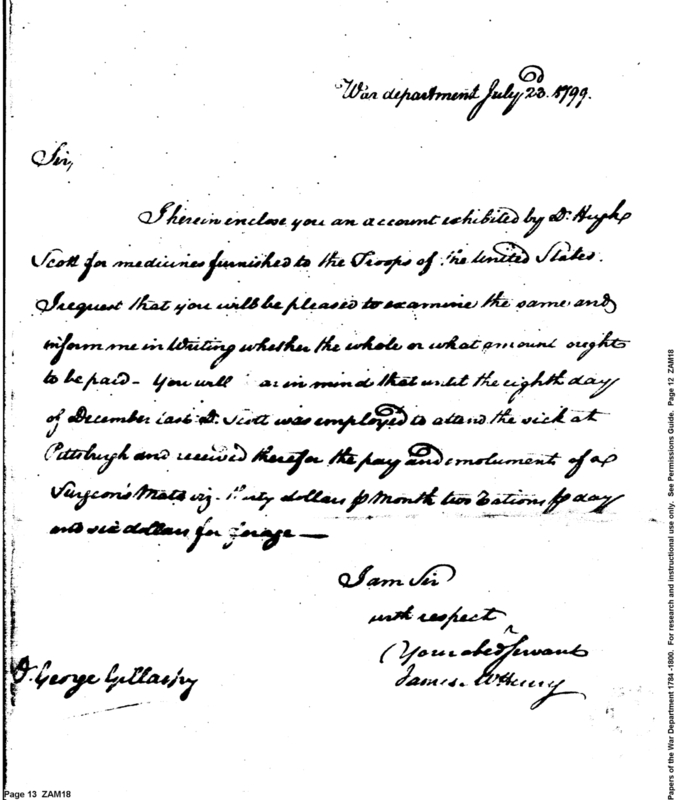 War department July 23d. 1799.
Sir,
I herein enclose you an account exhibited by Dr. Hugh
Scott for medicines furnished to the Troops of the United States.
I request that you will be pleased to examine the same and
inform me in Writing whether the whole or what amount ought
to be paid - You will in mind that until the eighth day
of December last Dr. Scott was employed to attend the sick at
Pittsburgh and received therefor the pay and emoluments of a
Surgeon's Mate viz. Thirty dollars p Month two rations p day
and six dollars for forage —
I am Sir
with respect
Your obed Servant
James McHenry
Dr. George Gillaspy
Page 13 ZAM18
Papers of the War Department 1784 -1800. For research and instructional use only. See Permissions Guide. Page 12 ZAM18